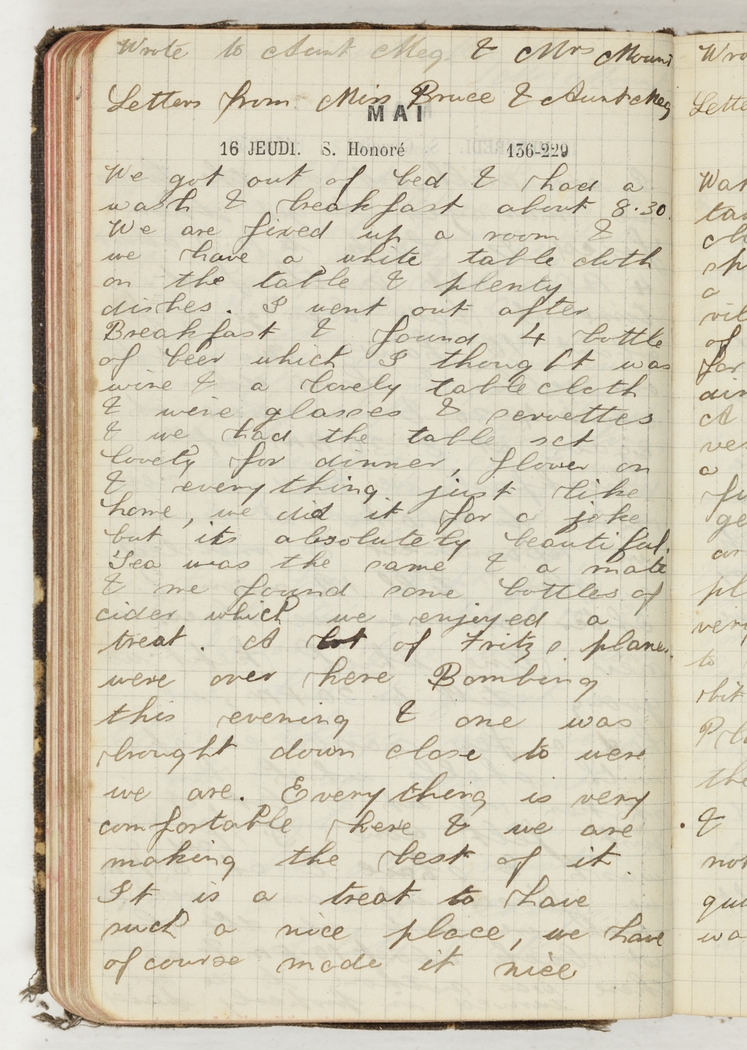 Wrote to Aunt Meg & Mrs Mount
Letters from Miss Bruce & Aunt Meg
MAI
16 JEUDI. S. Honoré 136-229
We got out of bed & had a
wash & breakfast about 8.30.
We are fixed up a room &
we have a white table cloth
on the table & plenty
dishes. I went out after
Breakfast & found 4 bottle
of beer which I thought was
wine & a lovely table cloth
& wine glasses & servettes
& we had the table set
lovely for dinner, flower on
& everything just like
home, we did it for a joke
but its absolutely beautiful.
Tea was the same & a mate
& me found some bottles of
cider which we enjoyed a
treat. A lot of Fritz s planes
were over here Bombing
this evening & one was
brought down close to were
we are. Everything is very
comfortable here & we are
making the best of it.
It is a treat to have
such a nice place, we have
of course made it nice
Wro
Lette
Wat
tar
cl
sp
a
vil
of
for
air
A
ver
a
fu
ge
ar
pl
very
to
bit
Pla
the
&
not
qui
wa